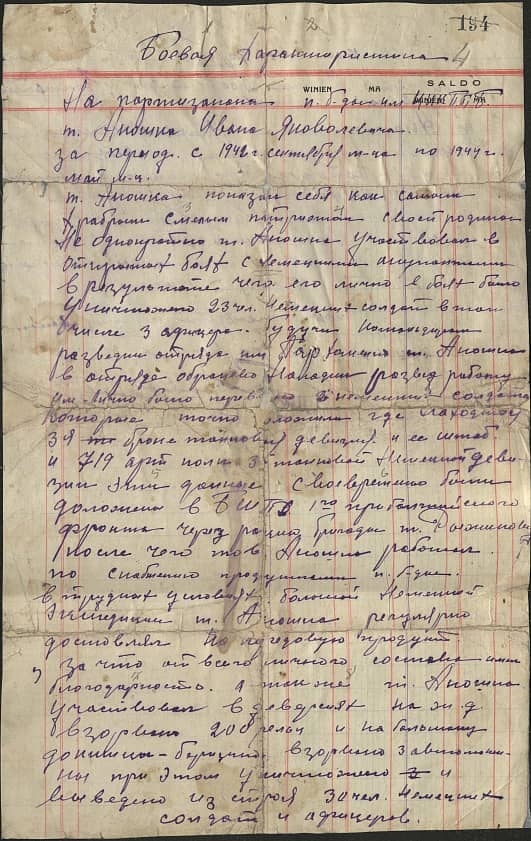 194
2
4
Боевая Характористика
WINIEN MA SALDO
На партизанана п. б-ды им
т. Аношка Ивана Яковолевича
за период. с 1942 г. сентября м-ца по 1944 г.
май м-ц.
т. Аношка показал себя как самым
храбрым смелым патриотом своей родины
Не однократно т. Аношка участвовал в
открытых боях с немецкими
в результате чего его лично в боях было
уничтожено 23 чел. немецких солдат в том
числе 3 афицера. Будучи командиром
разведки отряда им Пархоменко т. Аношка
в отряде образцево наладил развед работу
им лично было немецких солдата
которые точно где находился
39 броне танковая дивизия и ее штаб.
и 719 арт полк 3 танковой немецкой диви
зии эти данные своевременно были
доложена в 1го прибалтийского
фронта через рацию бригады т.
после чего тов Аношка работал
по снабжению продуктами п. б-ды.
в трудных условиях большой немецкой
экспедиции т. Аношка регулярно
доставлял продукт
за что от всего личного состава имел
благодарность. а так же т. Аношка
участвовал в деверсиях на ж. д
взорвано 200 рельс и на большаку
докшицы - взорвано 3 автомаши-
ны при этом уничтожено и
выведено из строя 30 чел. немецких
солдат и афицеров.